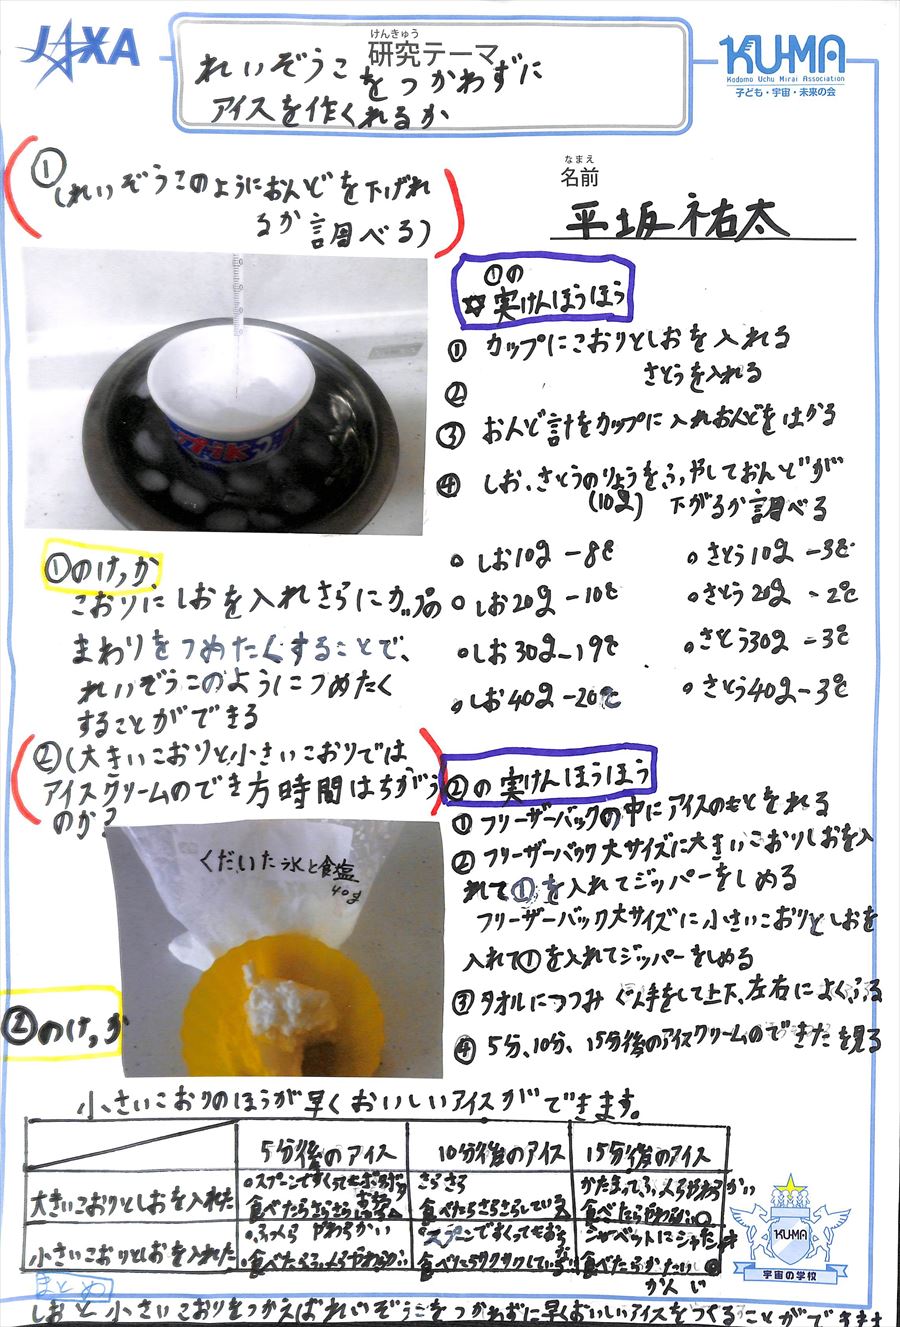 JAXA
けんきゅう
研究テーマ
れいぞうこをつかわずに
アイスを作くれるか
KU-MA
Kodomo Uchu Mirai Association
子ども・宇宙・未来の会
①
(れいぞうこのようにおんどを下げれ
るか調べる)
なまえ
名前
平坂祐太
①の
☆実けんほうほう
① カップにこおりとしおを入れる
② さとうを入れる
③ おんど計をカップに入れおんどをはかる
④ しお、さとうのりょうをふやしておんどが
(10g) 下がるか調べる
しお10g -8℃
さとう10g -3℃
しお20g -10℃
さとう20g -2℃
しお30g -19℃
さとう30g -3℃
しお40g -20℃
さとう40g -3℃
①のけっか
こおりにしおを入れさらにカップの
まわりをつめたくすることで、
れいぞうこのようにつめたく
することができる
②(大きいこおりと小さいこおりでは
アイスクリームのでき方時間はちがう
のか?
くだいた氷と食塩
40g
②の実けんほうほう
① フリーザーバックの中にアイスのもとをれる
② フリーザーバック大サイズに大きいこおりしおを入
れて①を入れてジッパーをしめる
フリーザーバック大サイズに小さいこおりとしおを
入れて①を入れてジッパーをしめる
③ タオルにつつみぐん手をして上下、左右によくふる
④ 5分、10分、15分後のアイスクリームのできたを見る
②のけっか
小さいこおりのほうが早くおいしいアイスができます。
5分後のアイス
10分後のアイス
15分後のアイス
大きいこおりとしおを入れた
スプーンですくっても
食べたらさらさら
さらさら
食べたらさらさらしている
かたまってふっくらやわらかい
食べたらやわらかい
小さいこおりとしおを入れた
ふっくら やわらかい
食べたらふっくらやわらかい
スプーンですくっても
食べたらサクサクしている
シャーベットに
食べたらかたい
かんじ
KU-MA
宇宙の学校
まとめ
しおと小さいこおりをつかえばれいぞうこをつかわずに早くおいしいアイスをつくることができます